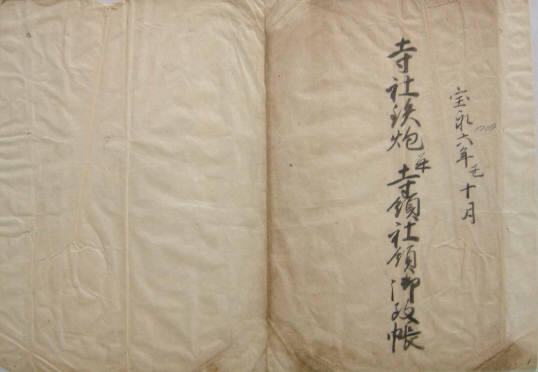 宝永六年丑十月
1709
寺社鉄炮并寺領社領御改帳